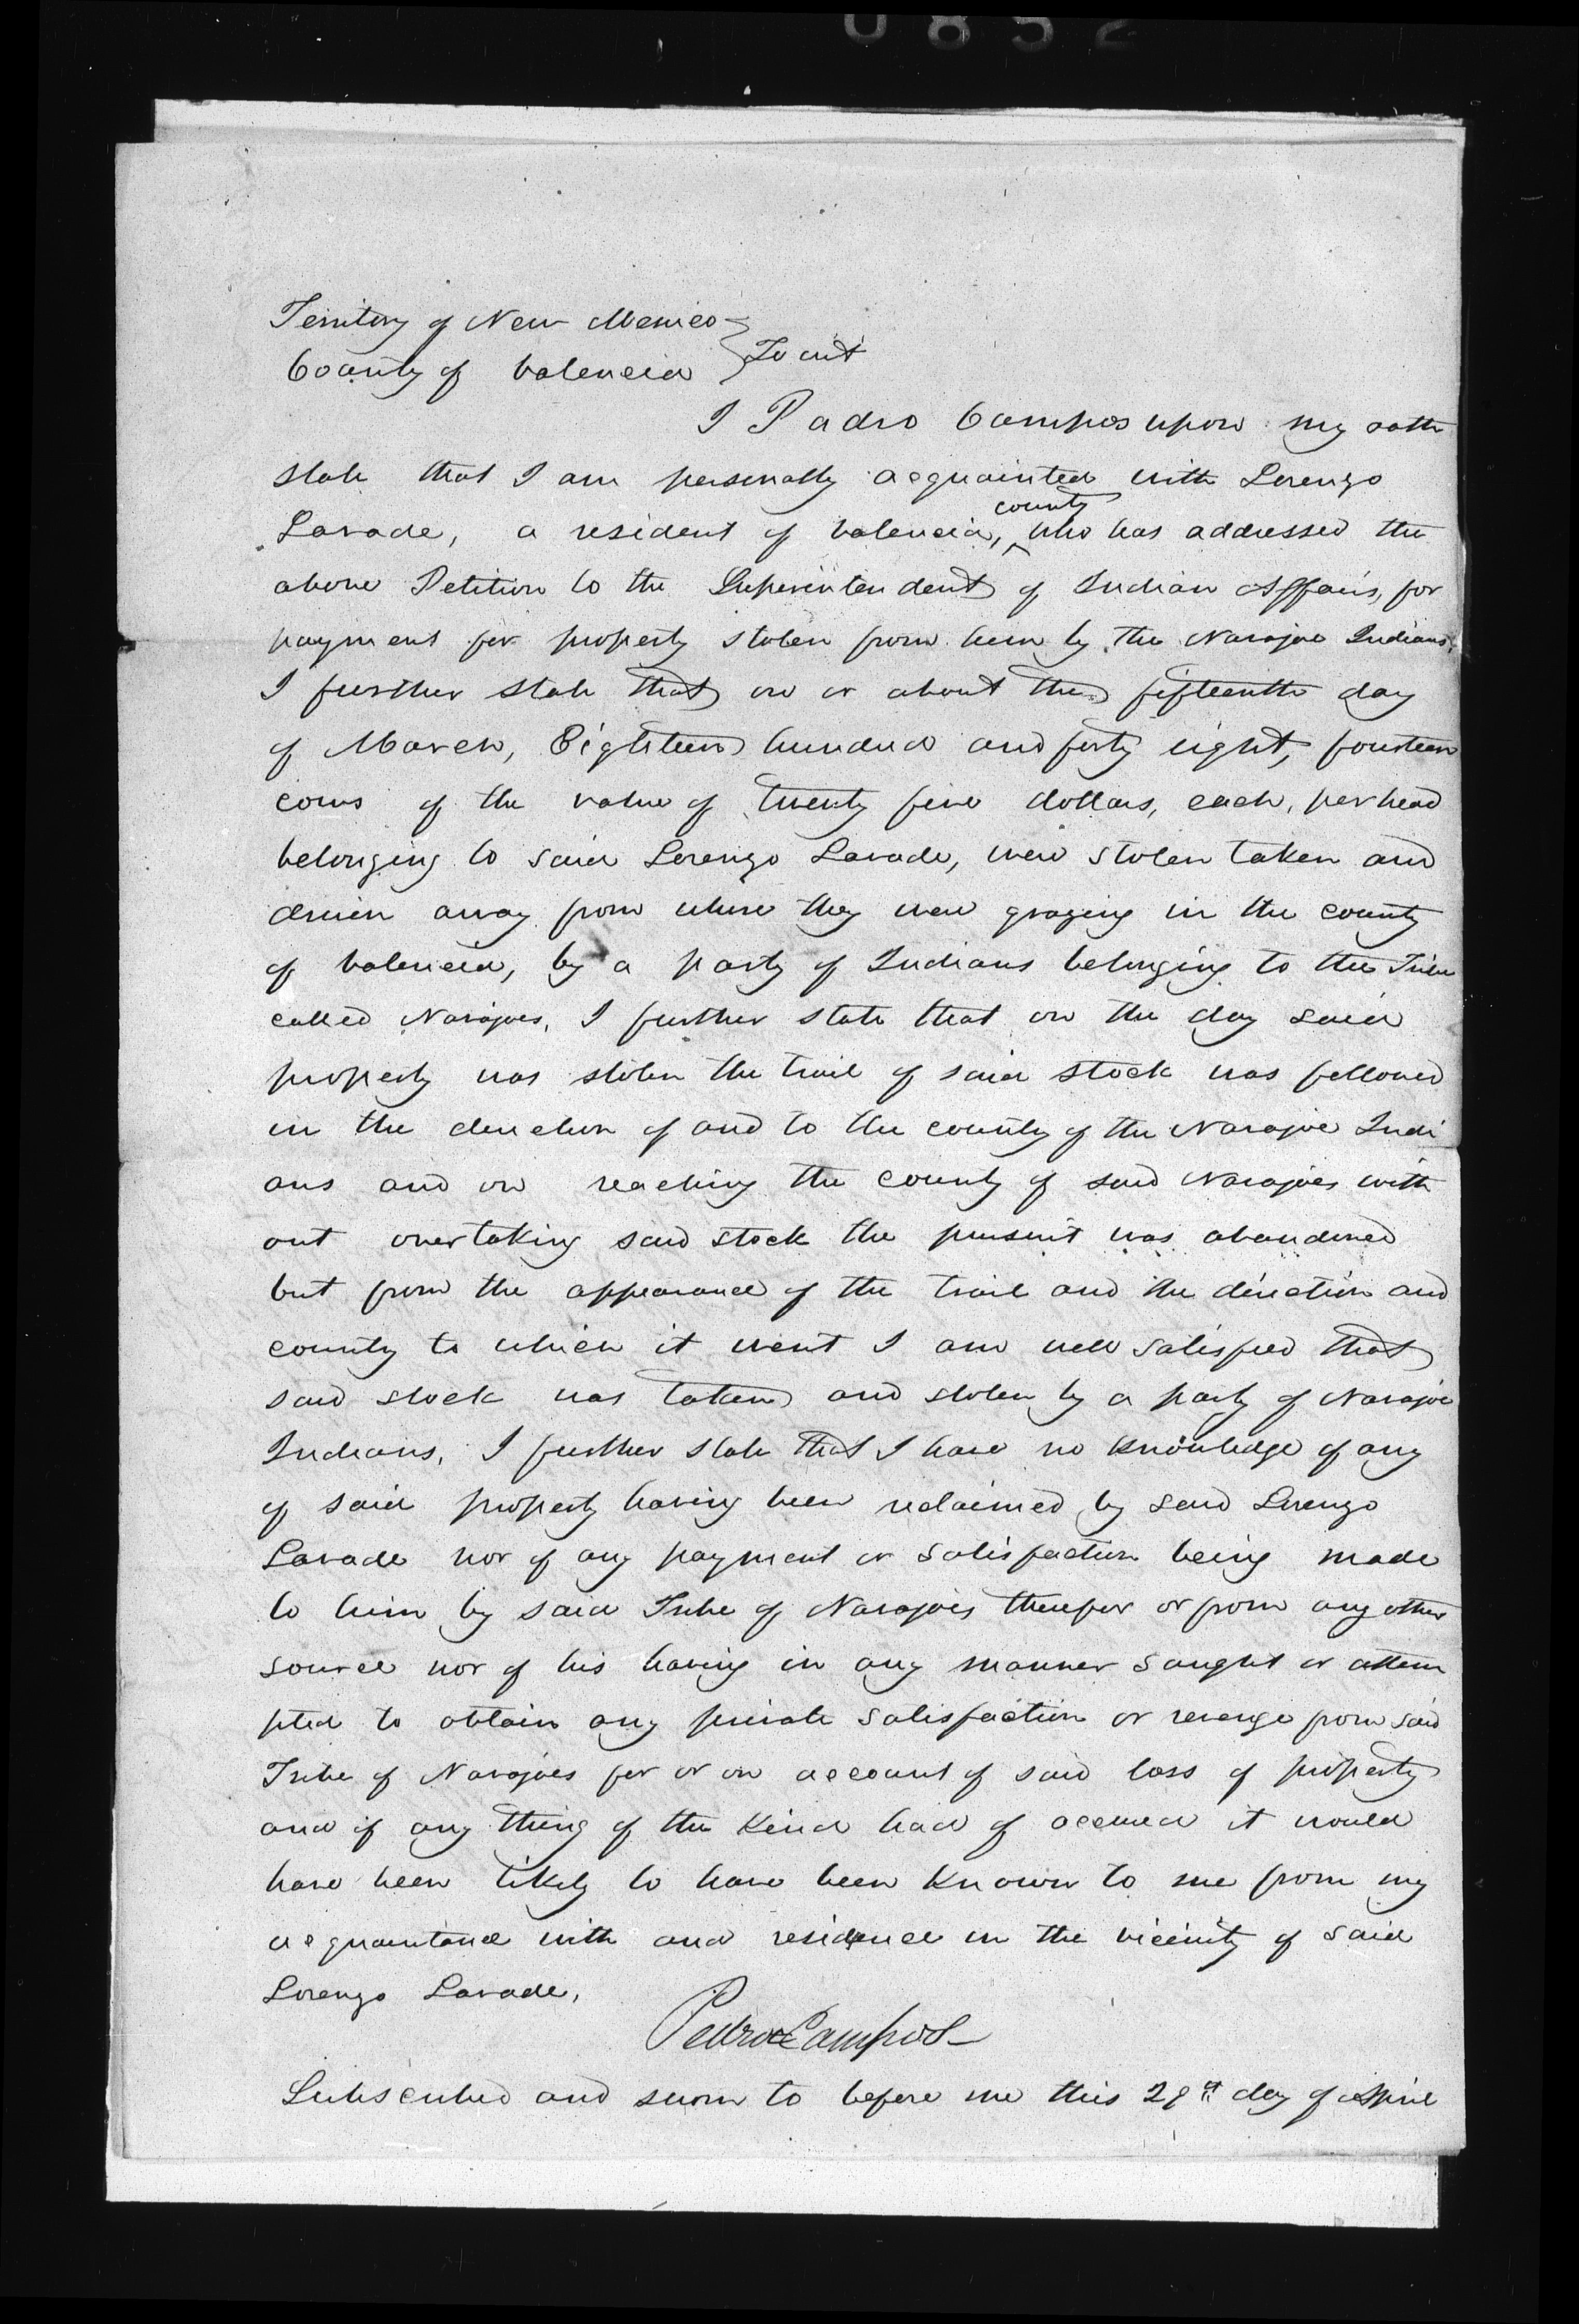 0852
Territory of New Mexico
County of Valencia } To wit
I Padro Campos upon my oath
state that I am personally acquainted with Lorenzo
county
Lavade, a resident of Valencia, ‸ who has addressed the
above Petition to the Superintendent of Indian Affairs, for
payment for property stolen from him by the Navajoe Indians,
I further state that on or about the fifteenth day
of March, Eighteen hundred and forty eight, fourteen
cows of the value of twenty five dollars, each, per head
belonging to said Lorenzo Lavade, were stolen taken and
driven away from where they were grazing in the county
of Valencia, by a party of Indians belonging to the Tribe
called Navajoes, I further state that on the day said
property was stolen the trail of said stock was followed
in the direction of and to the county of the Navajoe Indi
ans and on reaching the county of said Navajoes with
out overtaking said stock the pursuit was abandoned
but from the appearance of the trail and the direction and
county to which it went I am well satisfied that
said stock was taken and stolen by a party of Navajoe
Indians, I further state that I have no knowledge of any
of said property having been reclaimed by said Lorenzo
Lavade nor of any payment or satisfaction being made
to him by said Tribe of Navajoes therefor or from any other
source nor of his having in any manner sought or attem
pted to obtain any private satisfaction or revenge from said
Tribe of Navajoes for or on account of said loss of property
and if any thing of the kind had of occured it would
have been likely to have been known to me from my
acquaintance with and residence in the vicinity of said
Lorenzo Lavade,
Pedro Campos
Subscribed and sworn to before me this 28th day of April